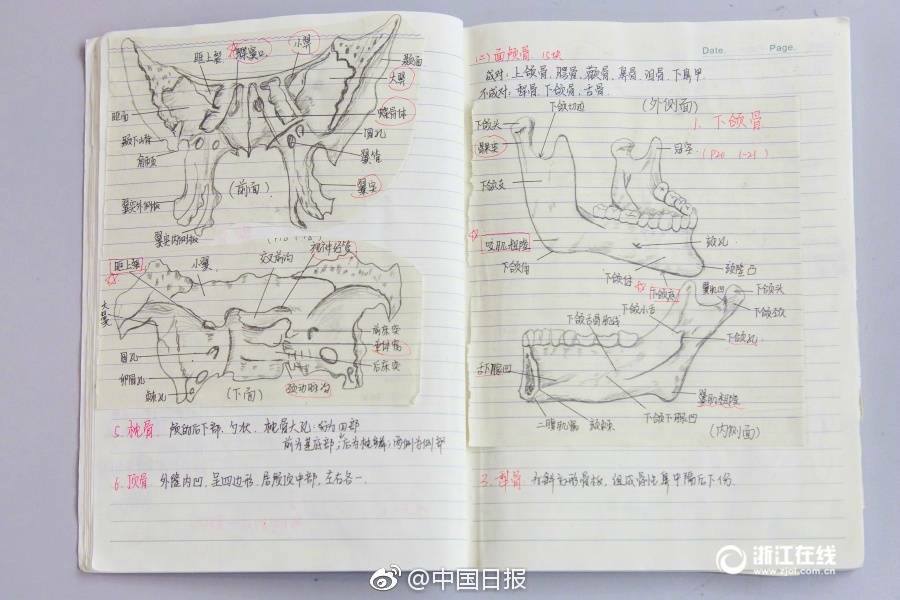 眶上裂
小翼
颞面
大翼
眶面
蝶骨体
圆孔
翼管
翼突
(前面)
翼突外侧板
翼突内侧板
眶上裂
小翼
交叉前沟
视神经管
大翼
圆孔
卵圆孔
棘孔
前床突
垂体窝
后床突
颈动脉沟
(下面)
5. 枕骨
颅的后下部、勺状、枕骨大孔
6. 顶骨 外隆内凹、呈四边形、居颅顶中部、左右各一.
Date.
Page.
(二) 面颅骨 15块
成对：上颌骨、腭骨、颧骨、鼻骨、泪骨、下鼻甲
不成对：犁骨、下颌骨、舌骨
(外侧面)
1. 下颌骨
(P20 1-21)
下颌头
下颌切迹
髁突
冠突
下颌支
咬肌粗隆
颏孔
下颌角
下颌体
颏隆凸
下颌底
翼肌凹
下颌头
下颌小舌
下颌颈
下颌舌骨肌线
下颌孔
舌下腺凹
翼肌粗隆
二腹肌窝
颏棘
下颌下腺凹
(内侧面)
3. 犁骨
@中国日报
浙江在线
www.zjol.com.cn